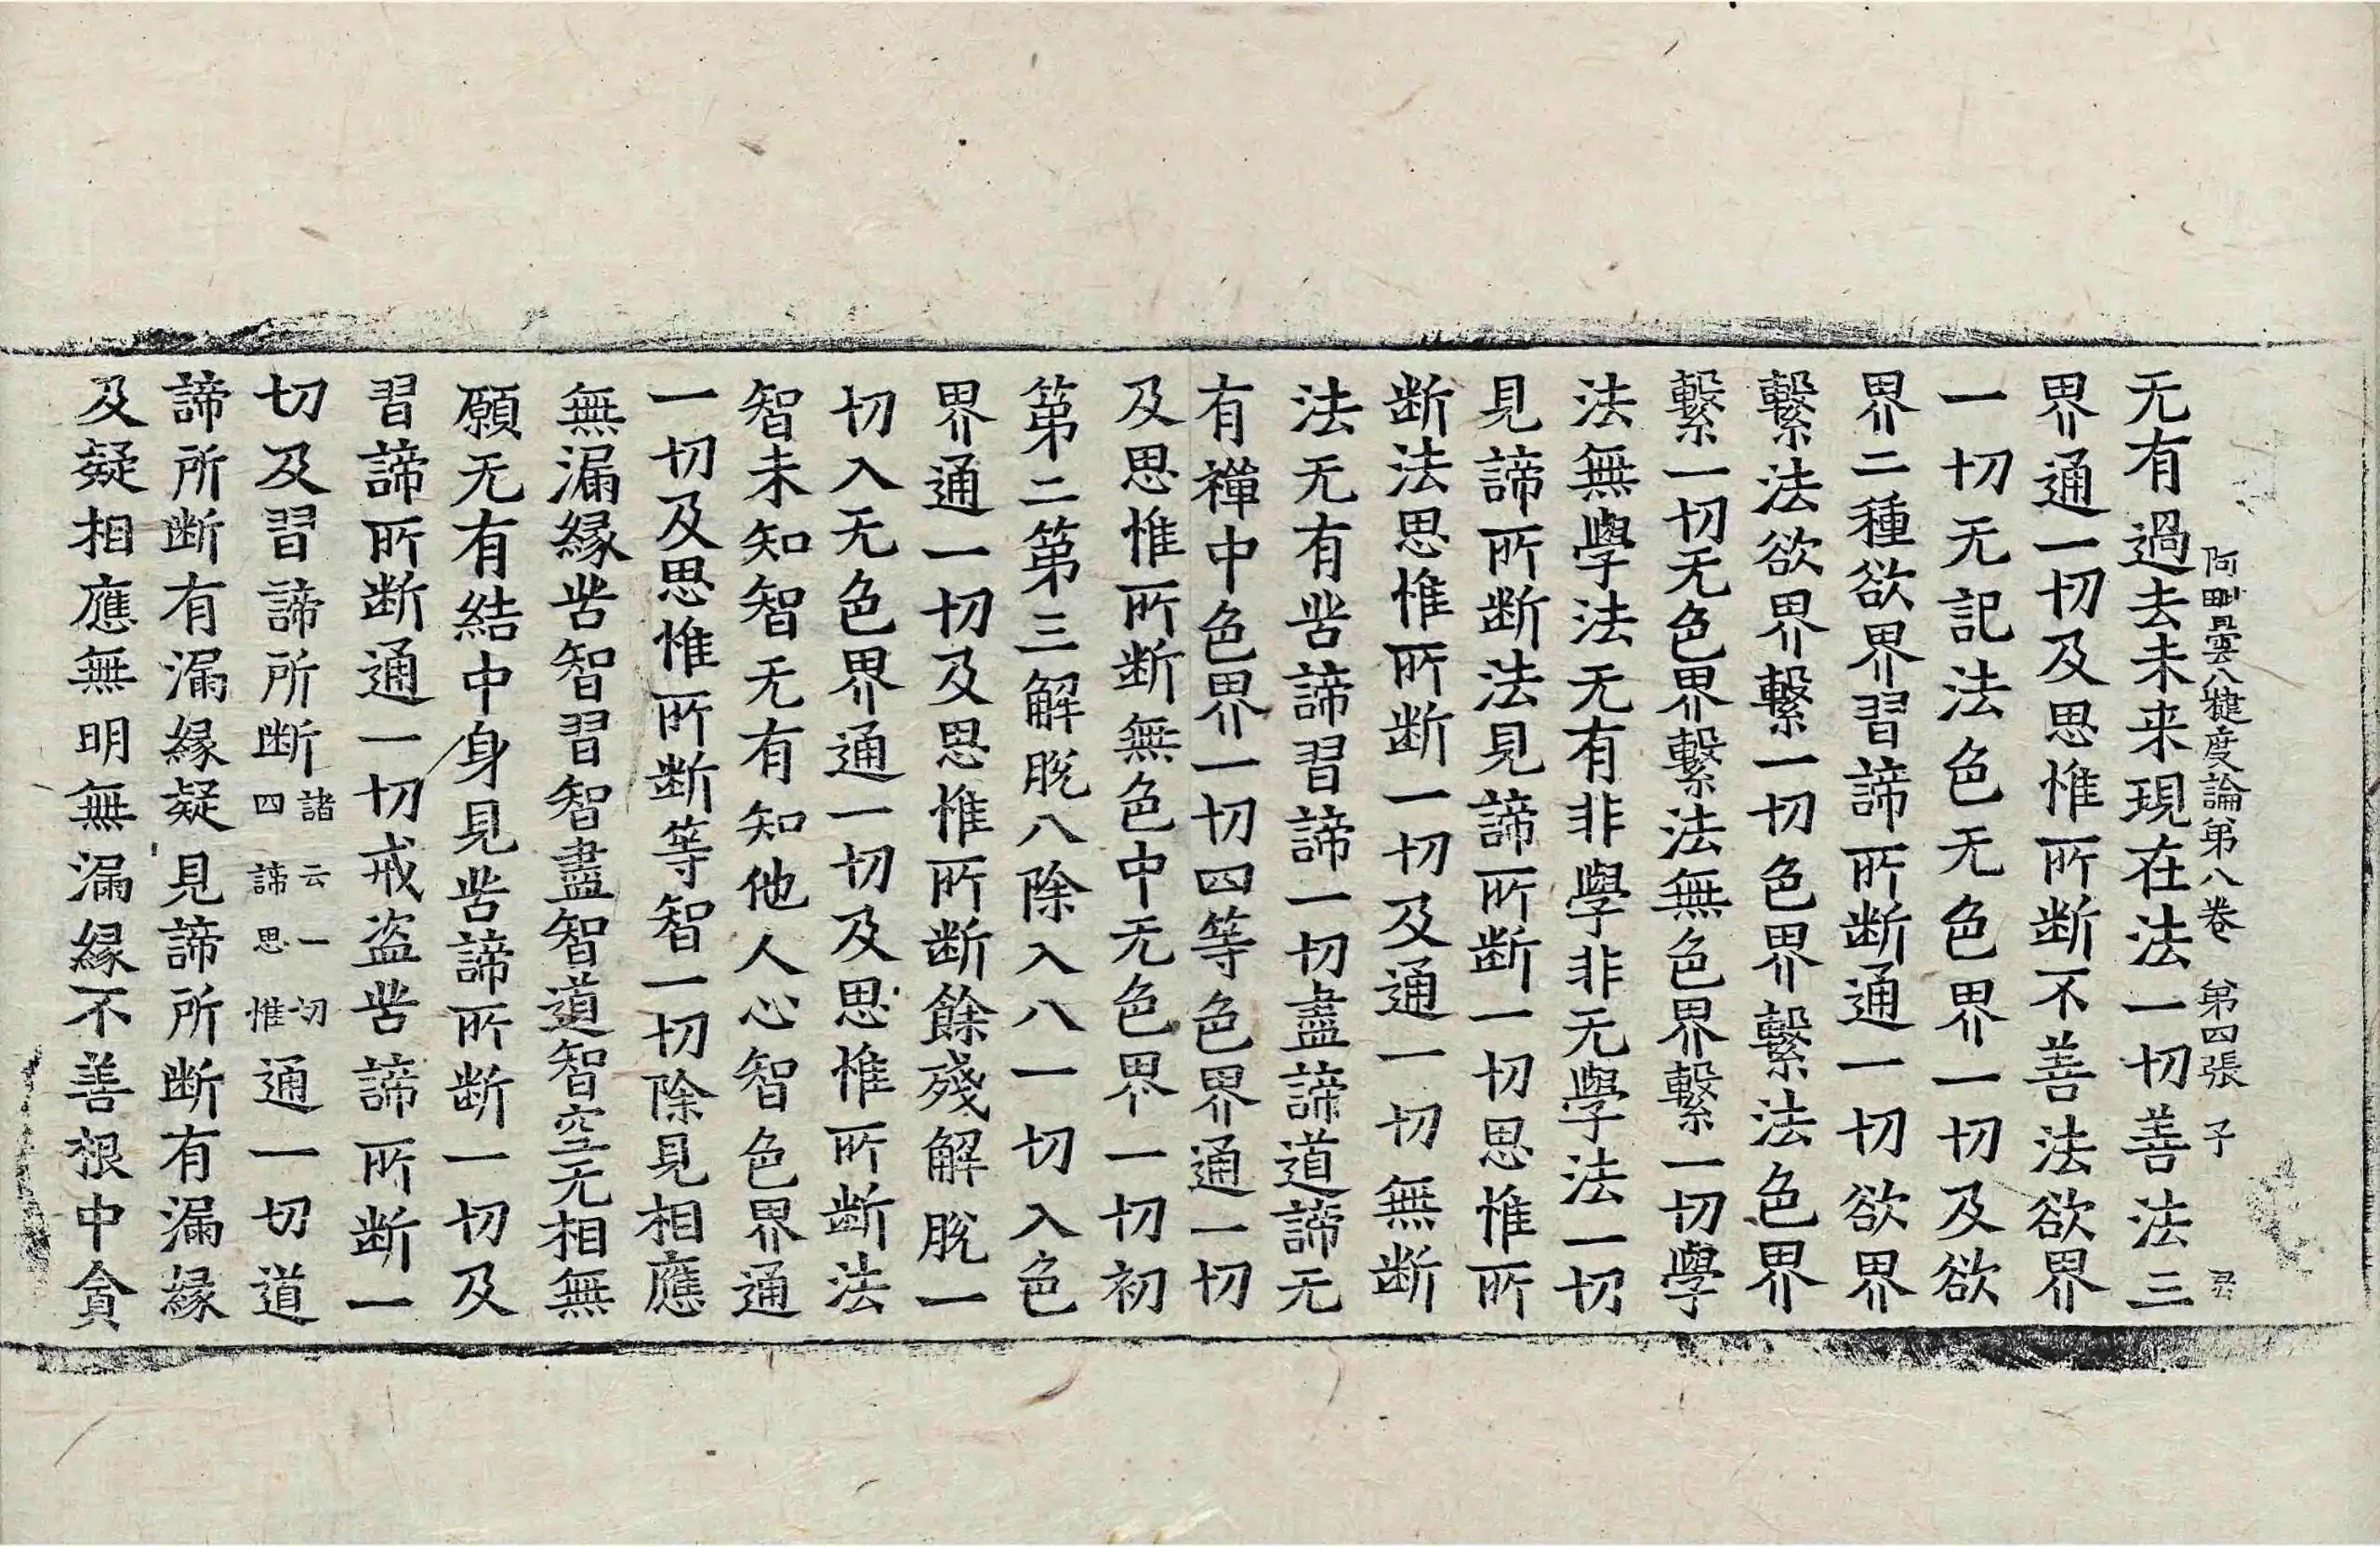 阿毗曇八犍度論第八卷 第四張 子
无有過去未来現在法一切善法三
界通一切及思惟所断不善法欲界
一切无記法色无色界一切及欲
界二種欲界習諦所断通一切欲界
繫法欲界繫一切色界繫法色界
繫一切无色界繫法無色界繫一切學
法無學法无有非學非无學法一切
見諦所断法見諦所断一切思惟所
断法思惟所断一切及通一切無断
法无有苦諦習諦一切盡諦道諦无
有禪中色界一切四等色界通一切
及思惟所断無色中无色界一切初
第二第三解脫八除入八一切入色
界通一切及思惟所断餘殘解脫一
切入无色界通一切及思惟所断法
智未知智无有知他人心智色界通
一切及思惟所断等智一切除見相應
無漏緣苦智習智盡智道智空无相無
願无有結中身見苦諦所断一切及
習諦所断通一切戒盗苦諦所断一
切及習諦所断諸云一切四諦思惟通一切道
諦所断有漏緣疑見諦所断有漏緣
及疑相應無明無漏緣不善根中貪